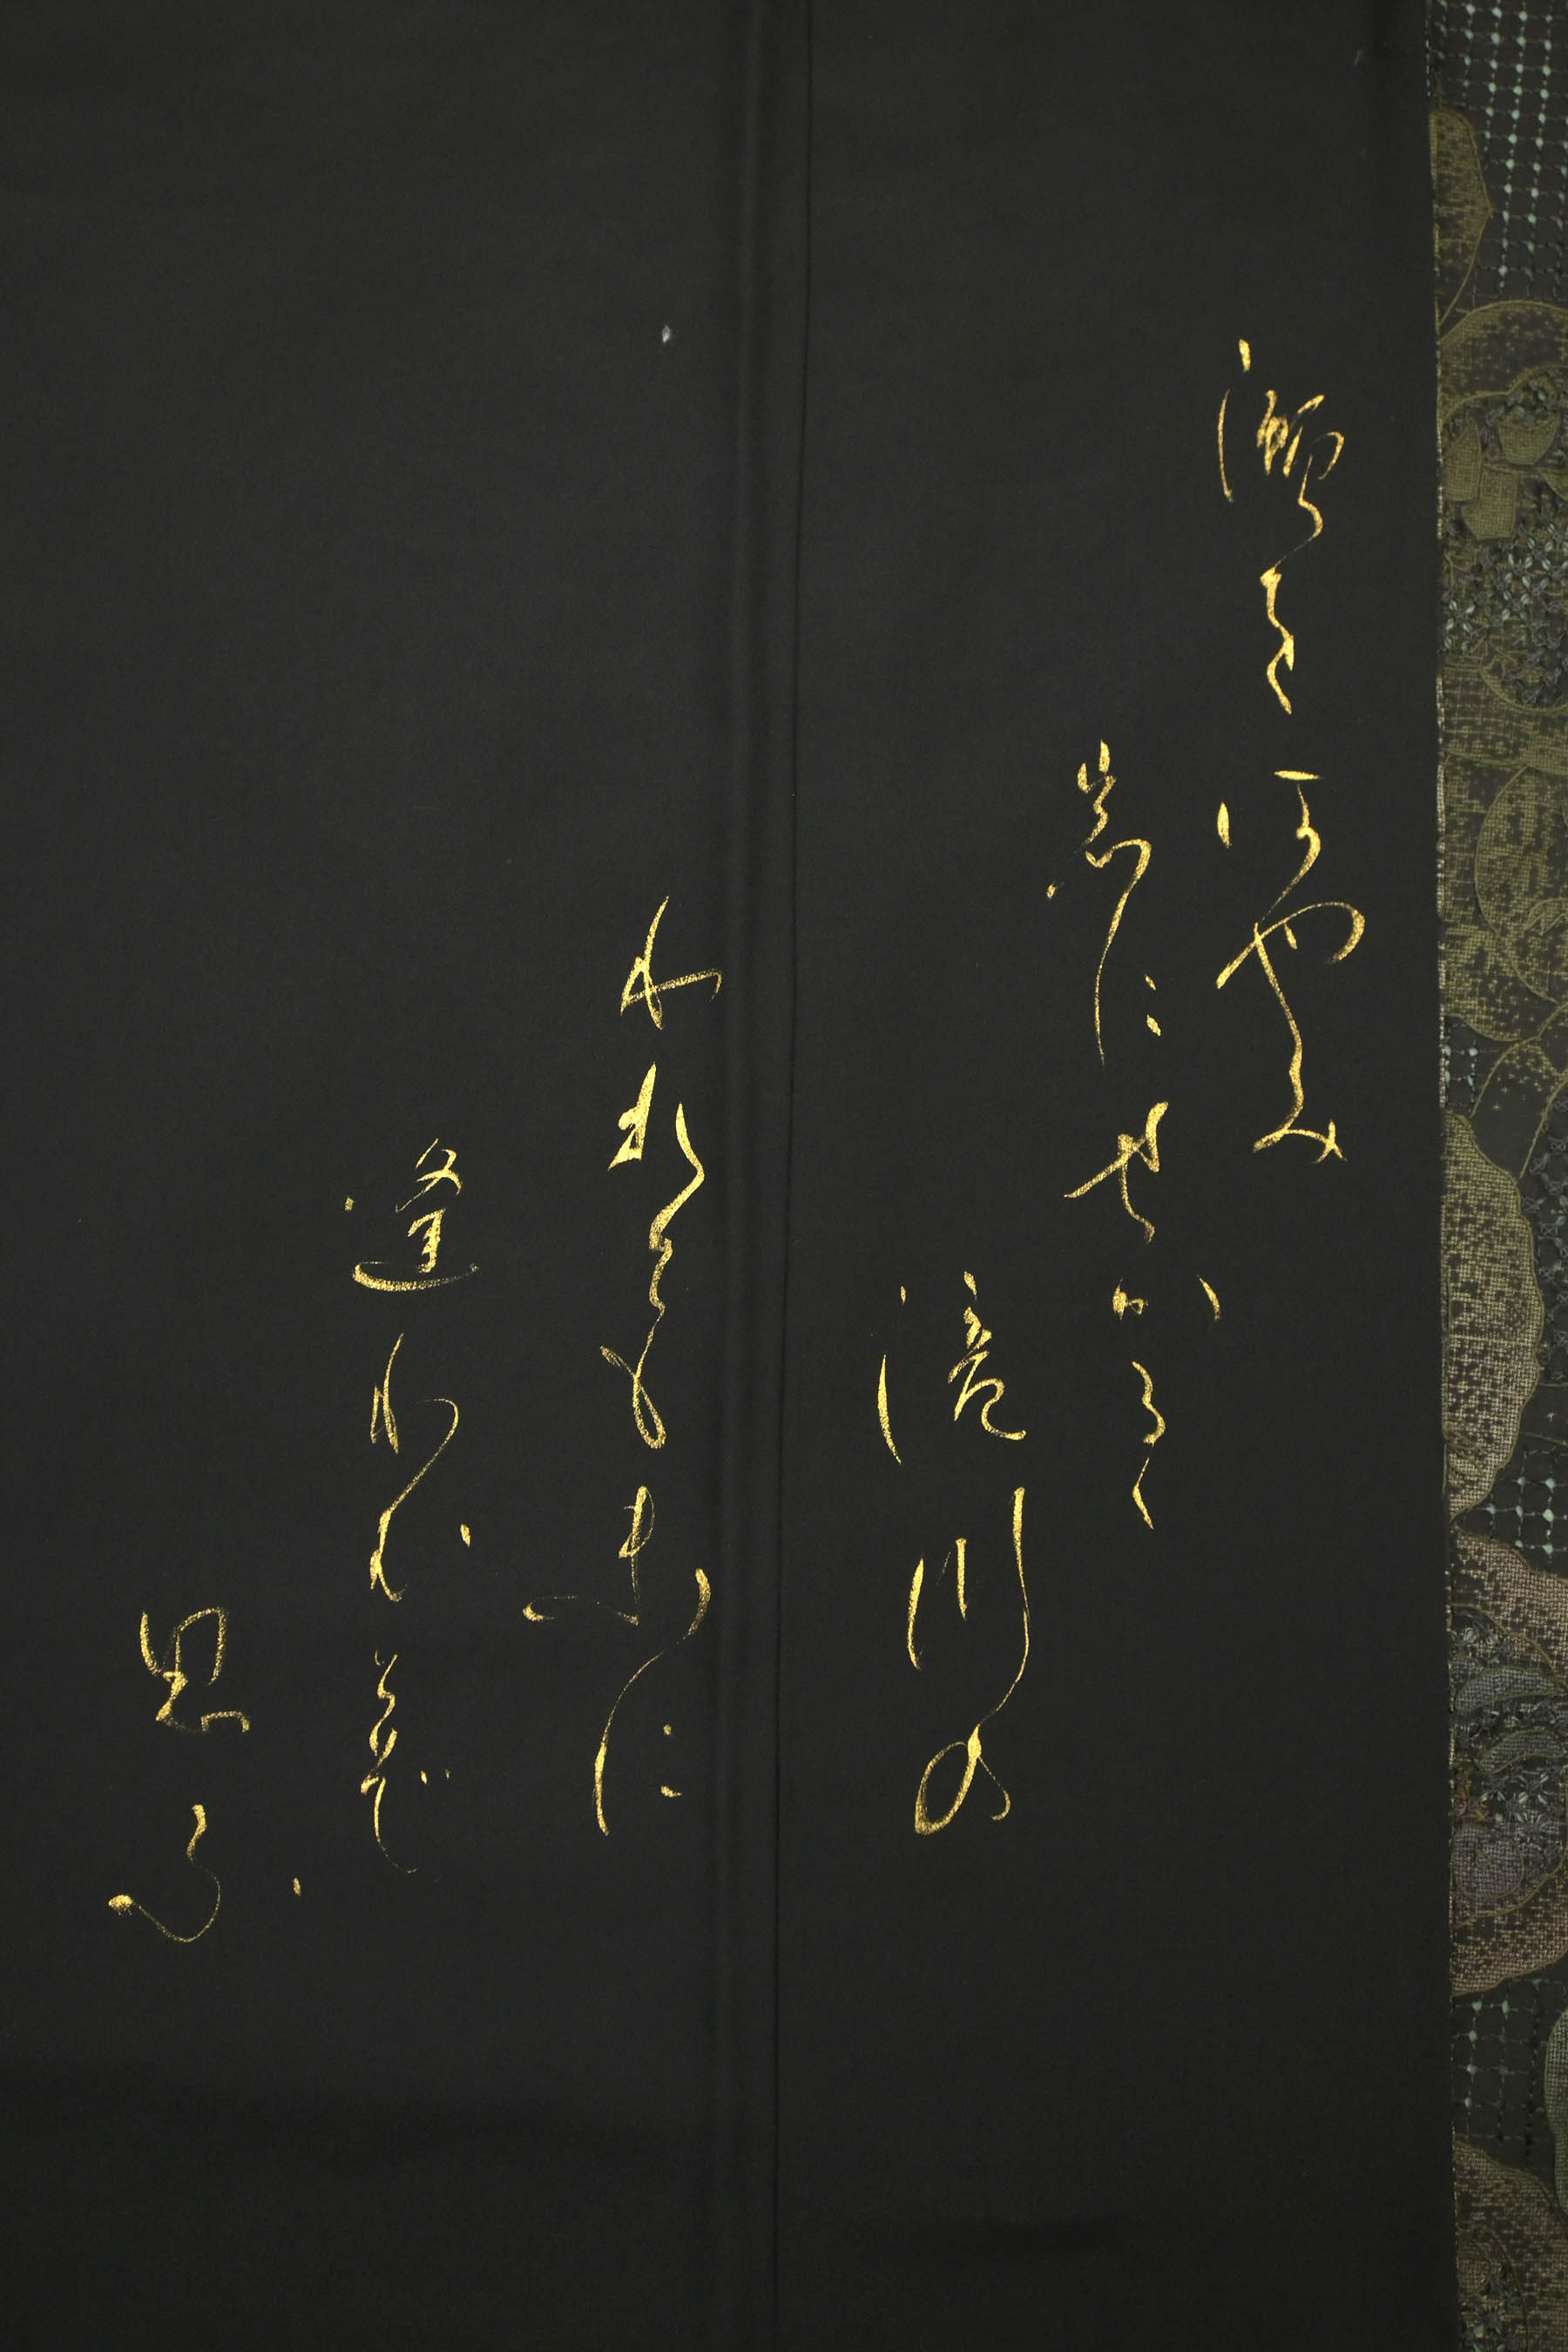 瀬をはやみ
岩にせかるゝ
滝川の
われても末に
逢わむとぞ
思ふ